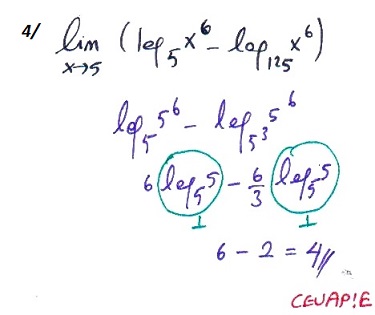 4/ lim x→5 (log₅x⁶ - log₁₂₅x⁶)
log₅5⁶ - log₅³5⁶
6 log₅5 - 6/3 log₅5
1 1
6 - 2 = 4//
CEVAP:E